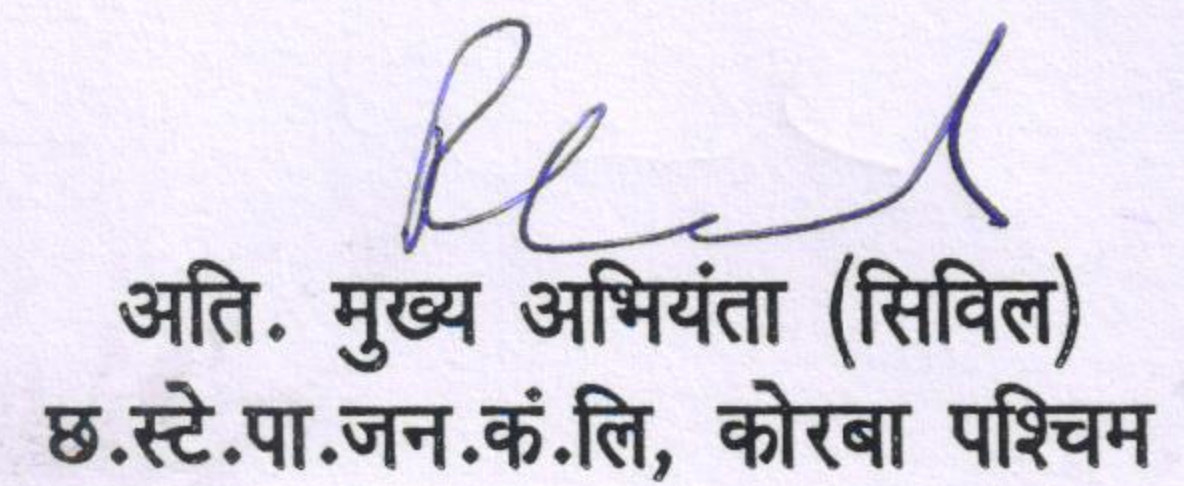 अति. मुख्य अभियंता (सिविल)
छ.स्टे.पा.जन.कं.लि, कोरबा पश्चिम